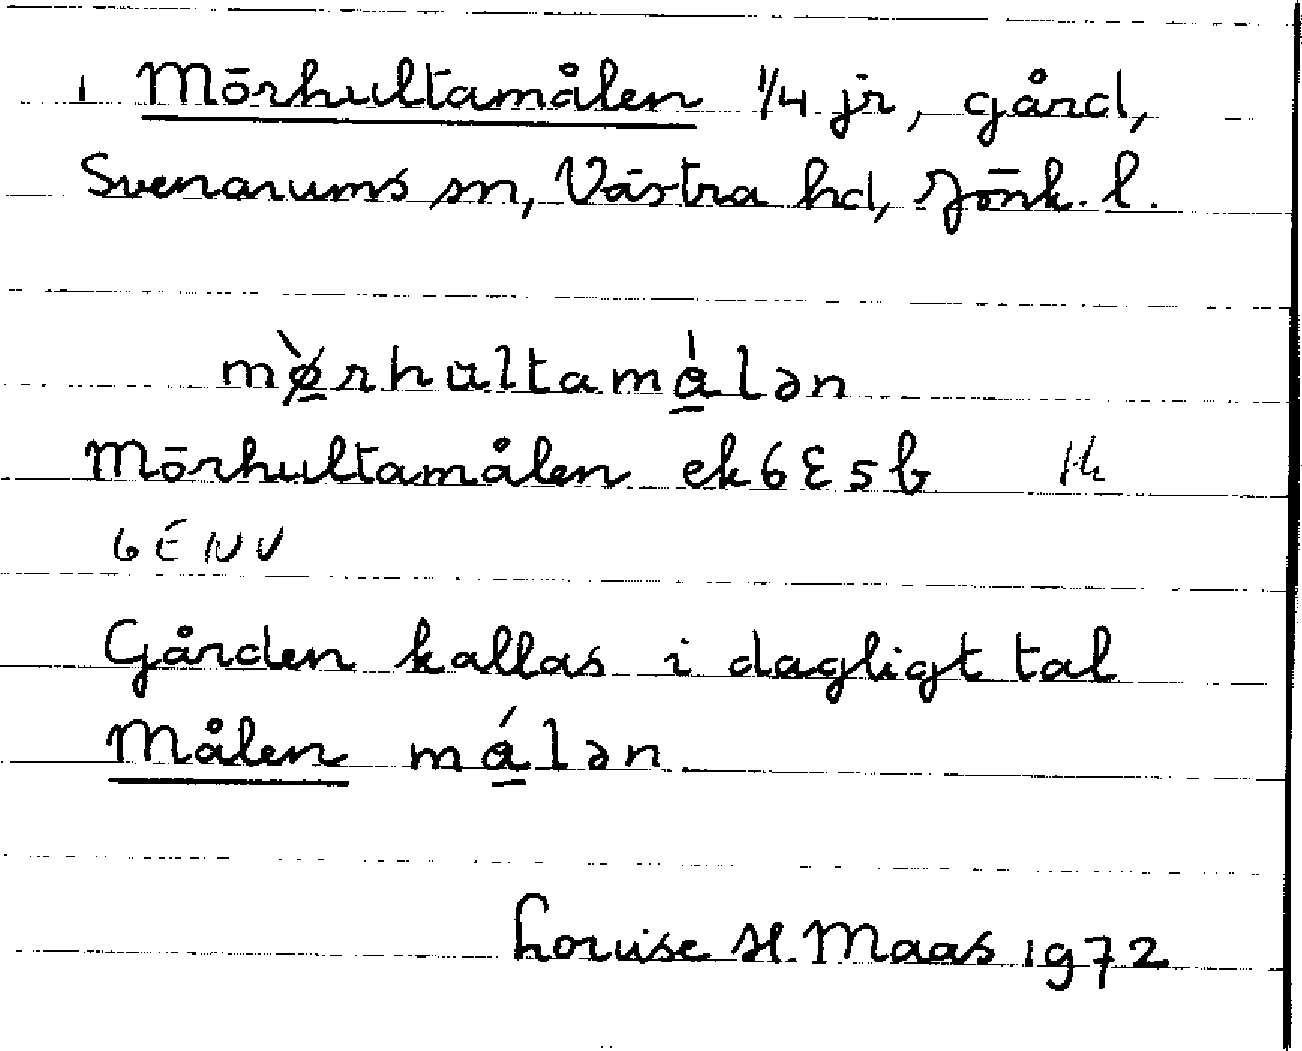 1 Mörhultamålen 1/4 jr, gård,
Svenarums sn, Västra hd, Jönk. l.
mø̀rhultamåˈlən
Mörhultamålen ek 6E5b
6E NV
Gården kallas i dagligt tal
Målen mǻlən
Louise H. Maas 1972